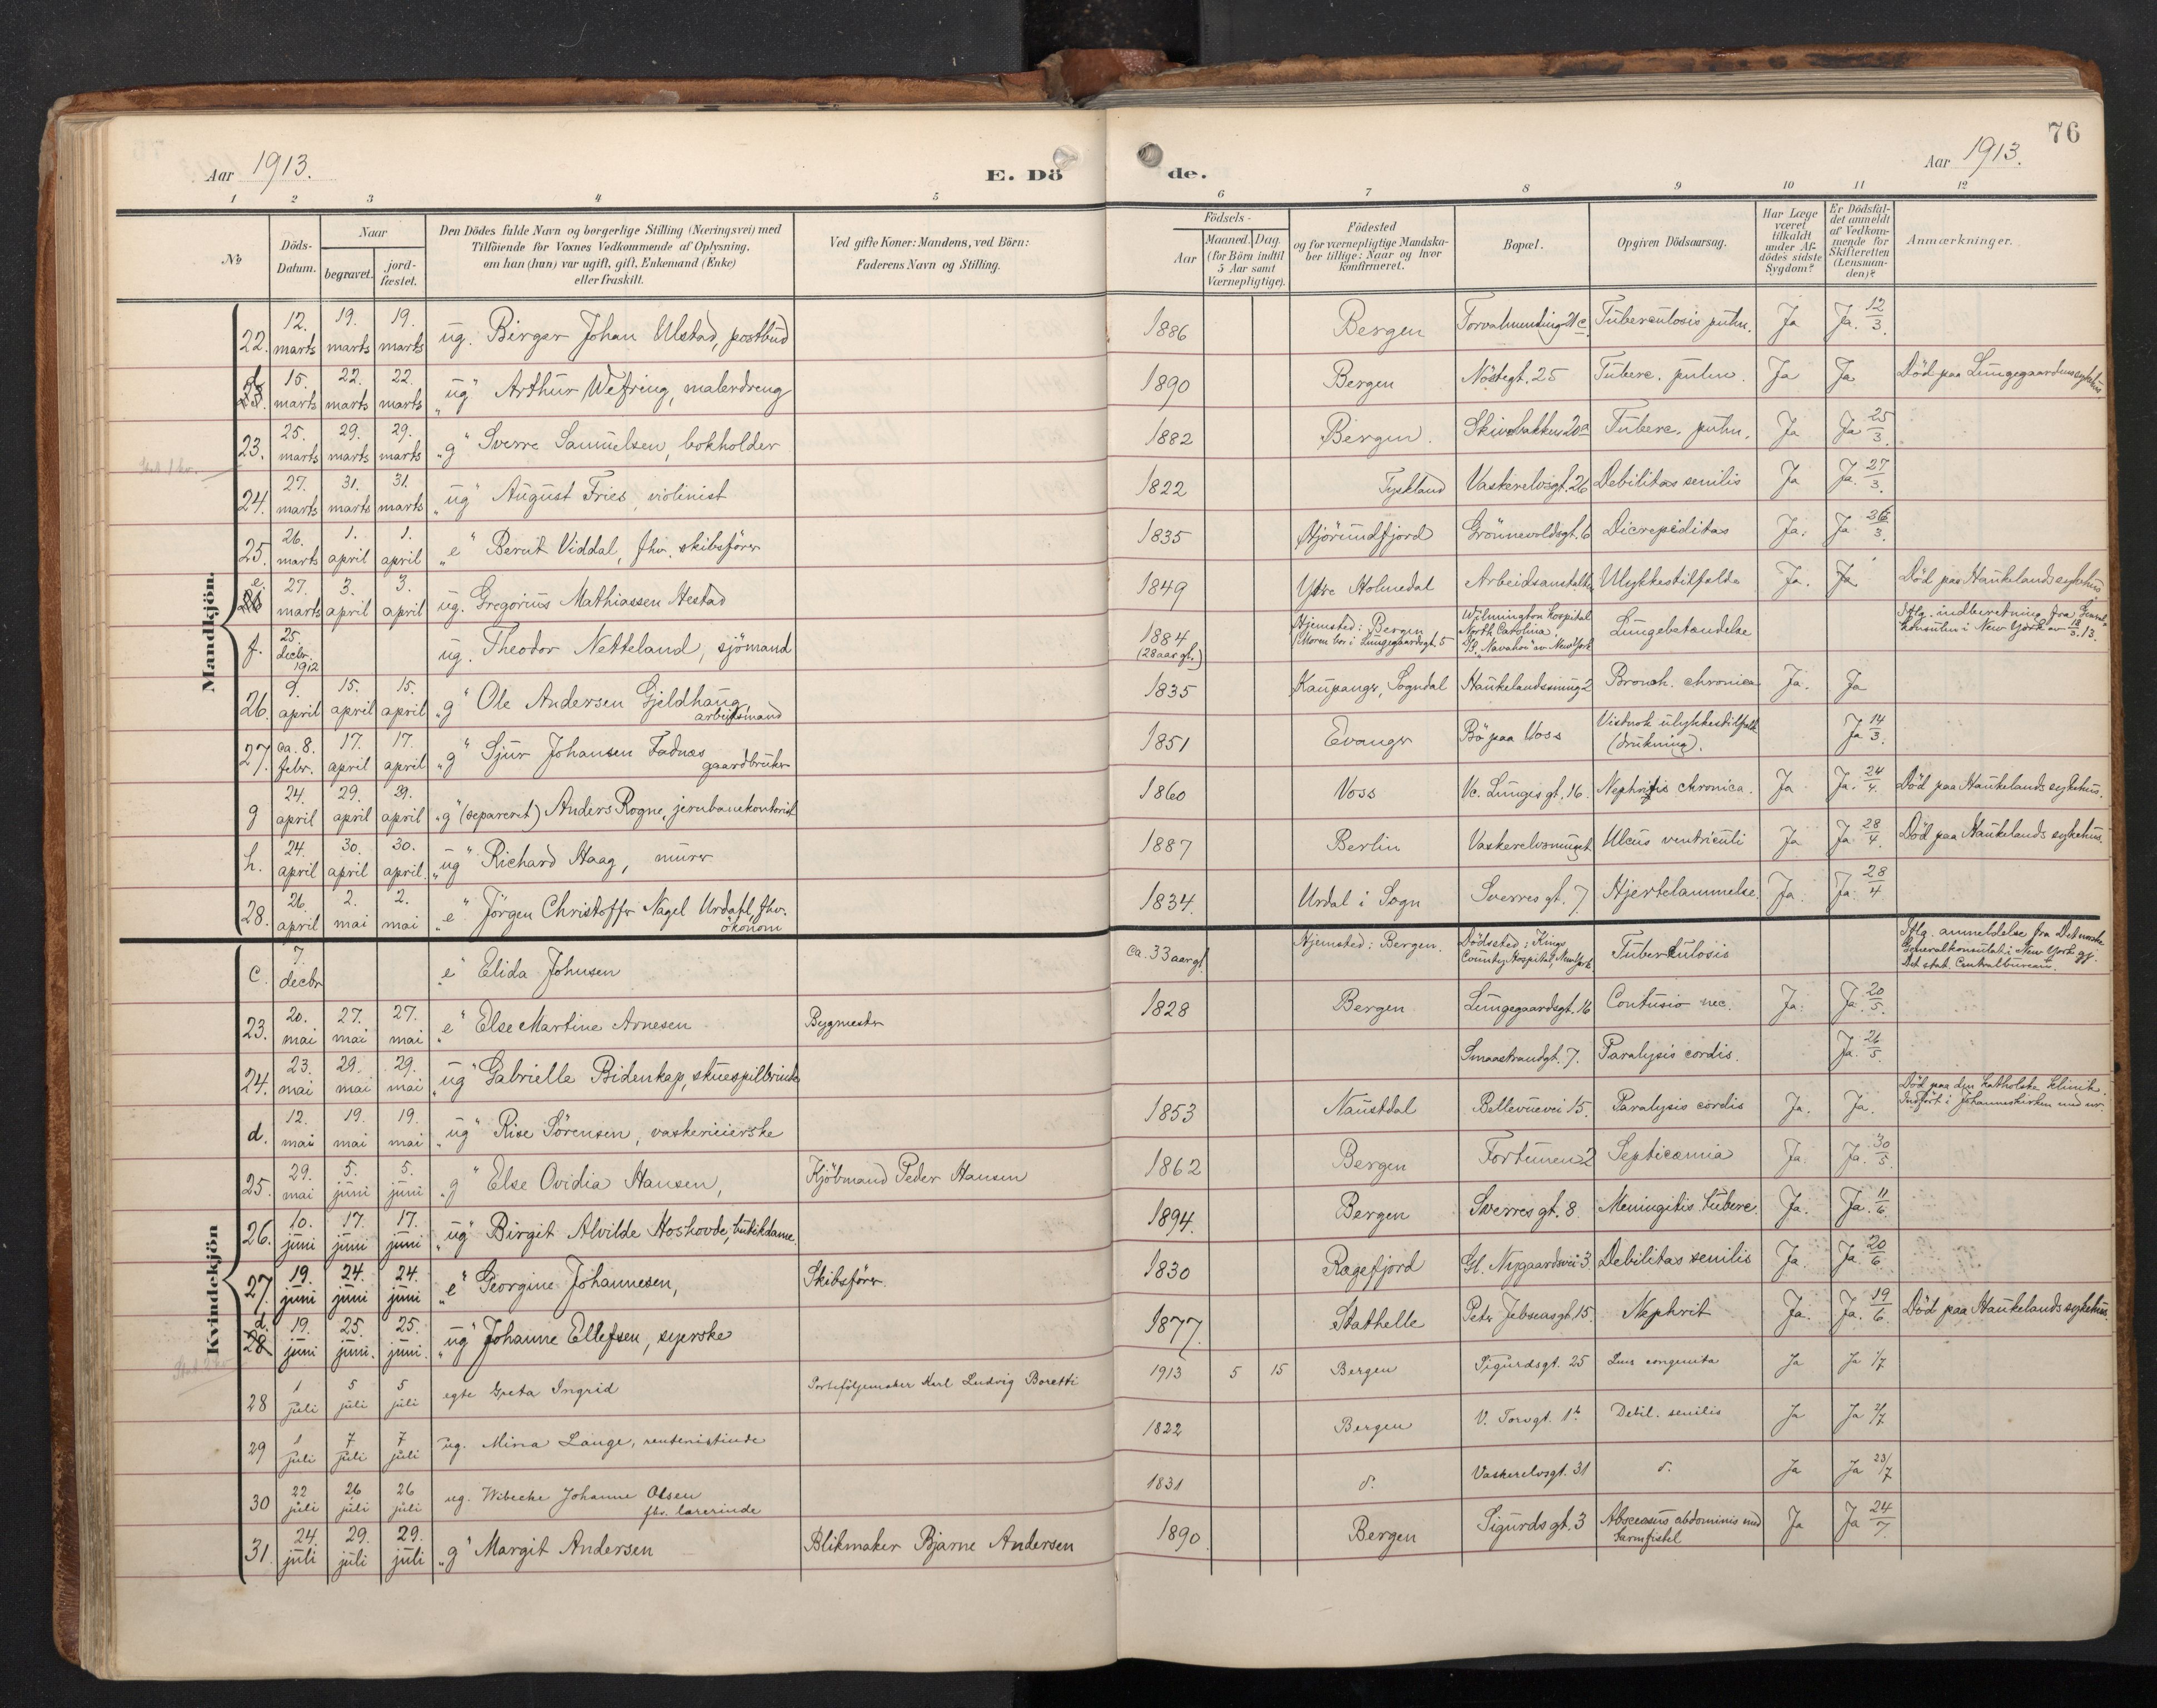 76
Aar 1913.
E. Dö de.
Aar 1913.
1 2 3 4 5 6 7 8 9 10 11 12
No
Döds-Datum.
Naar
begravet.
jord-fæstet.
Den Dödes fulde Navn og borgerlige Stilling (Næringsvei) med
Tilföiende for Voxnes Vedkommende af Oplysning,
om han (hun) var ugift, gift, Enkemand (Enke)
eller fraskilt.
Ved gifte Koner: Mandens, ved Börn:
Faderens Navn og Stilling.
Födsels-
Aar
Maaned. Dag.
(for Börn indtil
5 Aar samt
Værnepligtige).
Födested
og for værnepligtige Mandska-
ber tillige: Naar og hvor
konfirmeret.
Bopæl.
Opgiven Dödsaarsag.
Har Læge
været
tilkaldt
under Af-
dödes sidste
Sygdom?
Er Dödsfal-
det anmeldt
af Vedkom-
mende for
Skifteretten
(Lensman-
den)?
Anmærkninger.
Mandkjön.
22. 12. marts 19. marts 19. marts ug. Birger Johan Ulstad, postbud 1886 Bergen Torvalmending 21 c Tuberculosis pulm. Ja Ja. 12/3.
d 15. marts 22. marts 22. marts "ug" Arthur Wefring, malerdreng 1890 Bergen Nöstegt. 25 Tuberc. pulm. Ja Ja Död paa Lungegaardens sykehus.
23. 25. marts 29. marts 29. marts "g" Sverre Samuelsen, bokholder 1882 Bergen. Skivebakken 20a Tuberc. pulm. Ja Ja 25/3.
24. 27. marts 31. marts 31. marts "ug" August Fries, violinist 1822 Tyskland Vaskerelvsgt. 26 Debilitas senilis Ja Ja. 27/3.
25. 26. marts 1. april 1. april "e" Bernt Viddal, fhv. skibsförer 1835 Hjörundfjord Grönnevoldsgt. 6 Dicrepiditas Ja. Ja 26/3.
e. 27. marts 3. april 3. april ug. Gregorius Mathiassen Hestad 1849 Ytre Holmedal Arbeidsanstalten Ulykkestilfelde Ja. Ja. Död paa Haukelands sykehus.
f. 25. decbr. 1912 ug. Theodor Netteland, sjömand 1884 (28 aar gl.) Hjemsted: Bergen (Moren bor i Lungegaardsgt. 5 Wilmington hospital North Carolina. "Navahoe" av New York Lungebetændelse Iflg. indberetning fra General-konsulen i New York av 18/3. 13.
26. 9. april 15. april 15. april "g" Ole Andersen Gjeldhaug, arbeidsmand 1835 Kaupanger, Sogndal Haukelandssmug 2 Bronch. chronica Ja. Ja
27. ca. 8. febr. 17. april 17. april "g" Sjur Johansen Fadnæs gaardbruker 1851 Evanger Bö paa Voss Vistnok ulykkestilfælde (drukning). Ja 14/3.
g 24. april 29. april 29. april "g" (separeret) Anders Rogne, jernbanekontorist 1860 Voss Vc. Lunges gt. 16. Nephritis chronica. Ja Ja. 24/4. Död paa Haukelands sykehus.
h. 24. april 30. april 30. april. "ug" Richard Haag, murer 1887 Berlin Vaskerelvsmuget Ulcus ventriculi Ja Ja 28/4. Död paa Haukelands sykehus.
28. 26. april 2. mai 2. mai "e" Jörgen Christoffer Nagel Urdahl, fhv. ökonom 1834. Urdal i Sogn Sverres gt. 7 Hjertelammelse. Ja. Ja. 28/4
Kvindekjön
c. 7. decbr "e" Elida Johnsen ca. 33 aar gl. Hjemsted: Bergen. Dödssted: Kings County Hospital, New York Tuberkulosis Iflg. anmeldelse fra Det norske Generalkonsulat i New York gj. Det stat. Centralbureau.
23. 20. mai 27. mai 27. mai "e" Else Martine Arnesen Bygmester 1828 Bergen Lungegaardsgt. 16 Contusio nec. Ja. Ja. 20/5.
24. 23. mai 29. mai 29. mai "ug" Gabrielle Bidenkap, skuespillerinde Smaastrandgt. 7. Paralysis cordis. Ja. 26/5.
d. 12. mai 19. mai 19. mai "ug" Rise Sörensen, vaskerieierske 1853 Naustdal Bellevuevei 15. Paralysis cordis Ja. Ja. Död paa den katholske klinik. Indfört i Johanneskirken med nr.
25. 29. mai 5. juni 5. juni "g" Else Ovidia Hansen, Kjöbmand Peder Hansen 1862 Bergen Fortunen 2 Septicæmia Ja. Ja. 30/5.
26. 10. juni 17. juni 17. juni "ug" Birgit Alvilde Hoshovde, butikdame. 1894. Bergen Sverres gt. 8. Meningitis tuberc. Ja. Ja. 11/6.
27. 19. juni 24. juni 24. juni "e" Georgine Johannesen, Skibsförer. 1830 Ragefjord Gl. Nygaardsvei 3. Debilitas senilis Ja. Ja. 20/6.
d. 28 19. juni 25. juni. 25. juni. "ug" Johanne Ellefsen, syerske 1877. Stathelle Peter Jebsensgt. 15. Nephrit Ja. Ja. 19/6. Död paa Haukelands sykehus.
28 1 juli 5 juli 5 juli egte Greta Ingrid Portefölgemaker Karl Ludvig Boretti 1913 5 15 Bergen Sigurdsgt. 25 Lues congenita Ja Ja 1/7
29 1 juli 7 juli 7 juli ug. Mina Lange, rentenistinde 1822 Bergen V. Torvgt. 1b Debil. senilis Ja Ja 2/7
30 22 juli 26 juli 26 juli ug. Wibecke Johanne Olsen fhv. lærerinde 1831 d. Vaskerelvsgt. 31 d. Ja Ja 23/7
31. 24. juli 29. juli 29. juli "g" Margit Andersen Blikmaker Bjarne Andersen 1890. Bergen Sigurds gt. 3 Abscessus abdominis med tarmfistel Ja Ja 24/7.